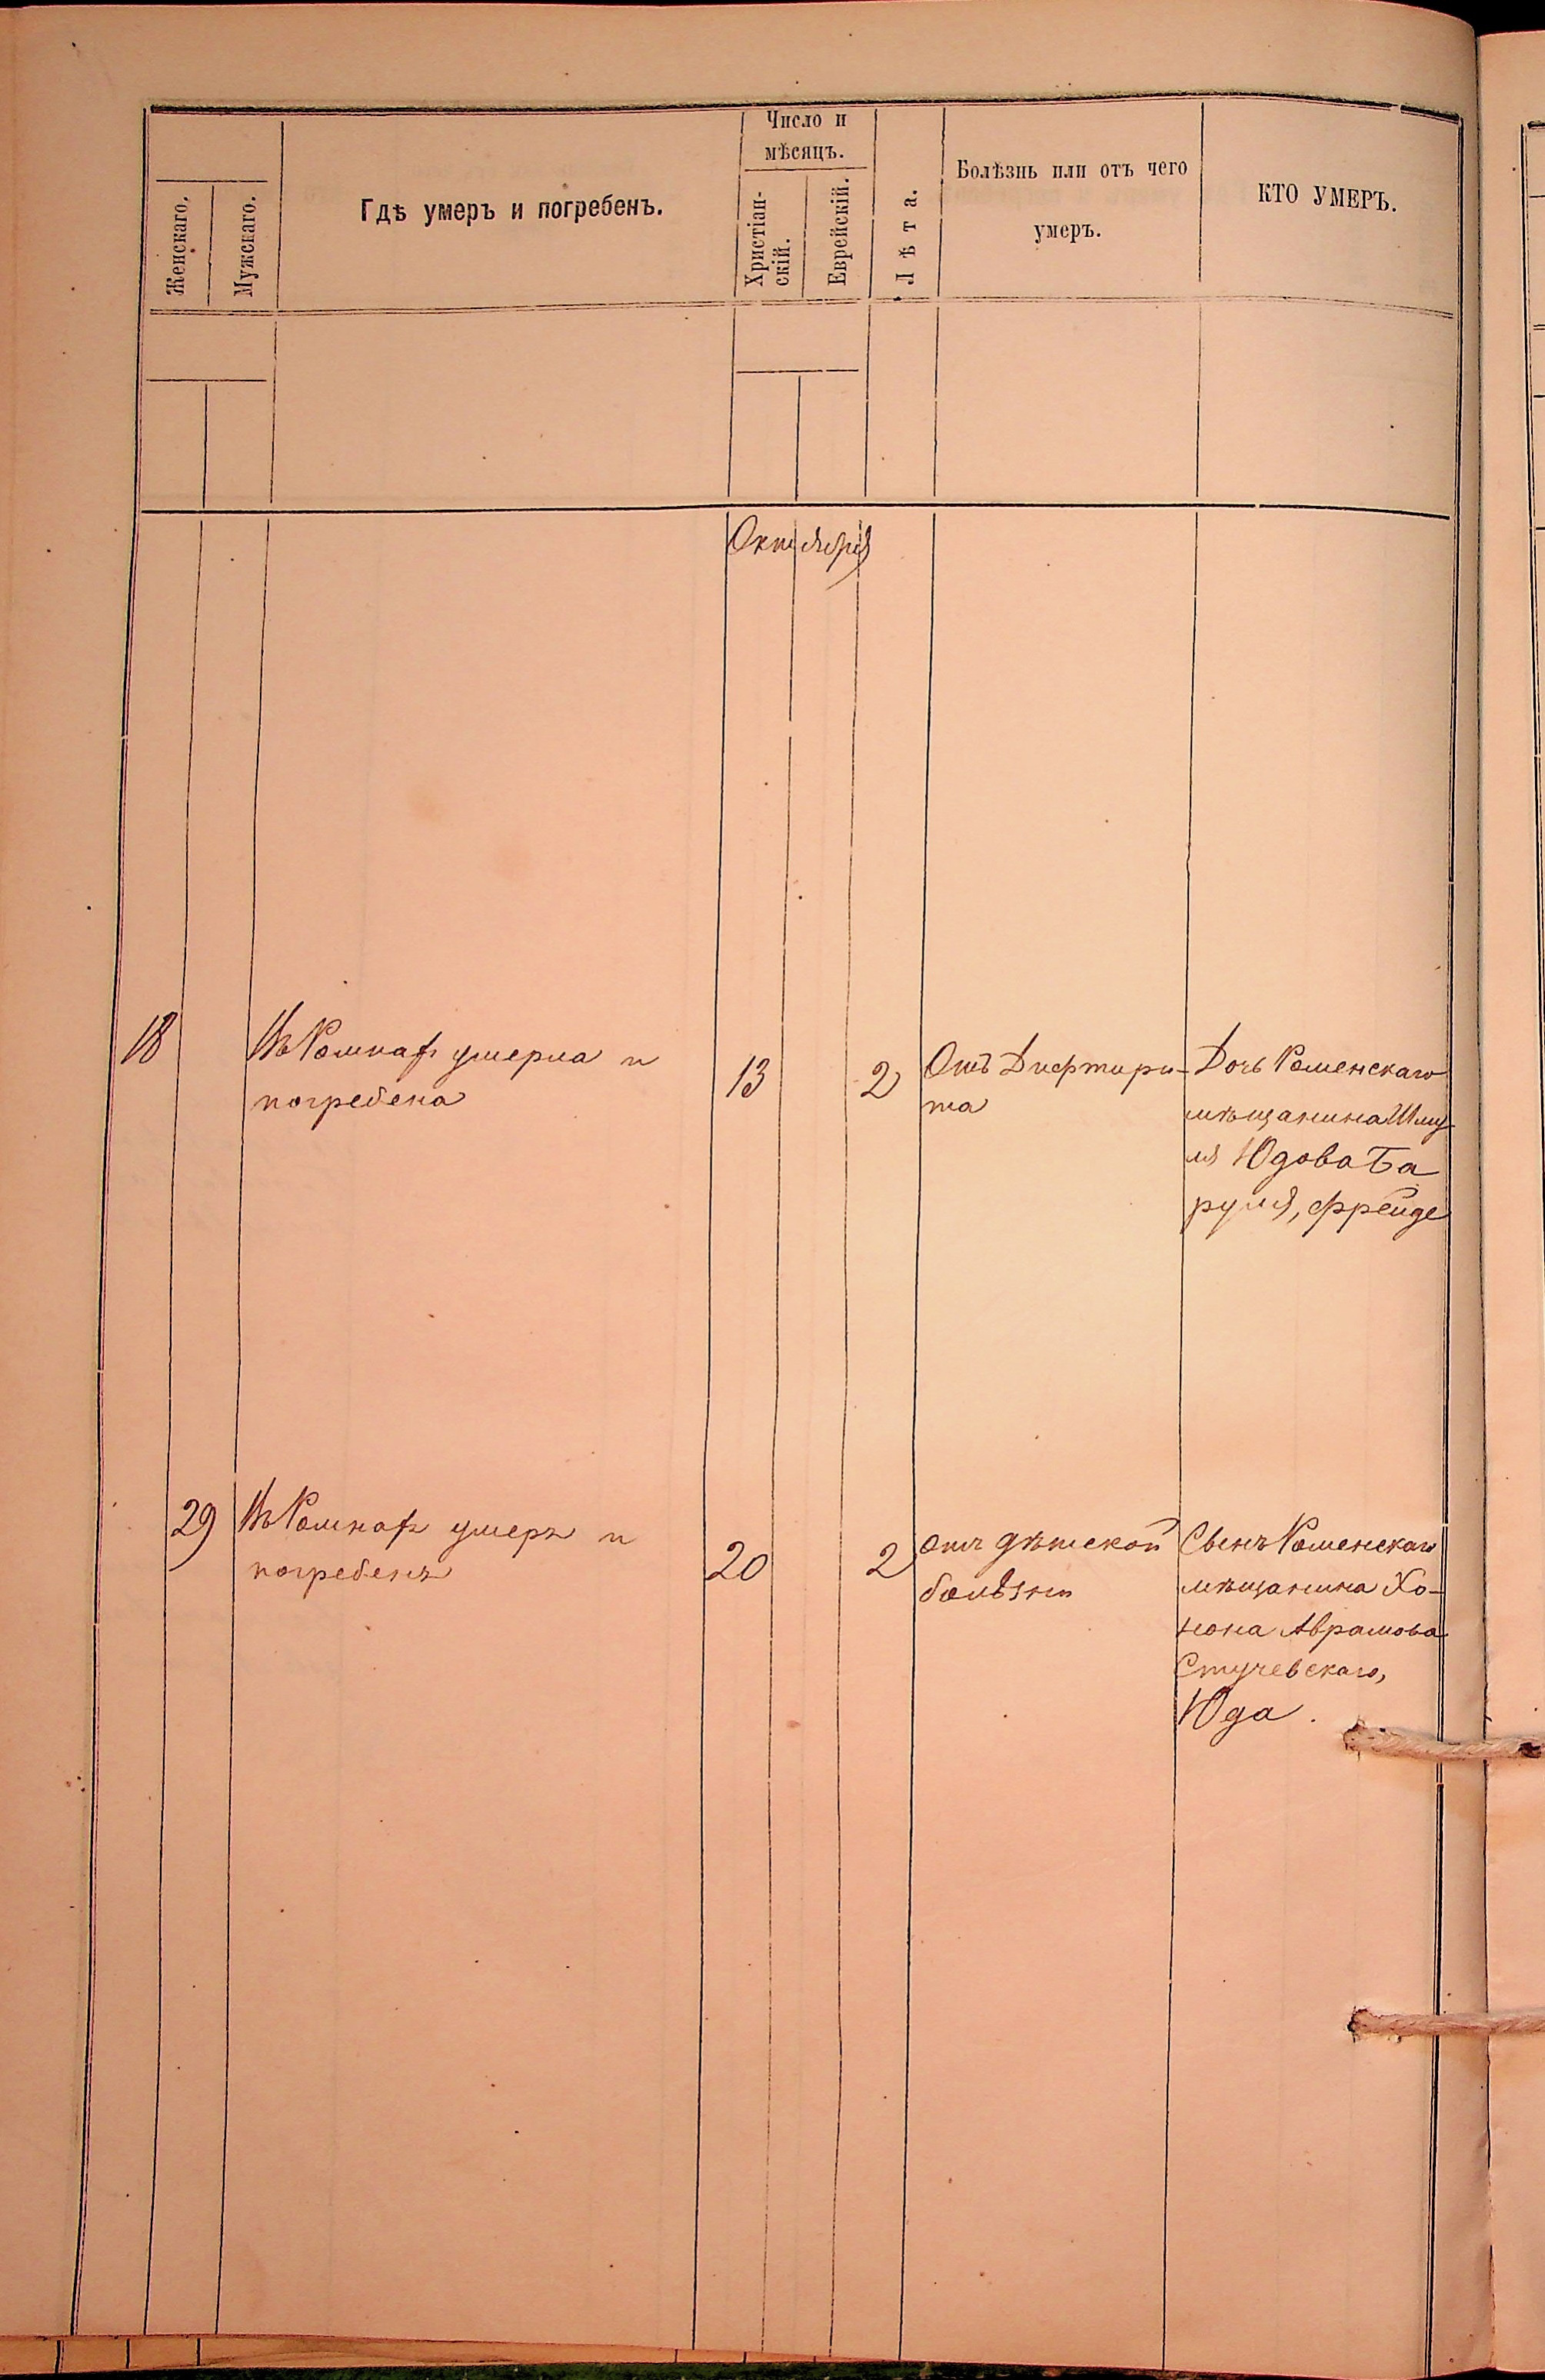 Женскаго.
Мужскаго.
Гдѣ умеръ и погребенъ.
Число и
мѣсяцъ.
Христіан-
скій.
Еврейскій.
Лѣта.
Болѣзнь или отъ чего
умеръ.
КТО УМЕРЪ.
Октября
18
Въ Ромнахъ умерла и
погребена
13
2
Отъ Дифтири-
та
Дочь Роменскаго
мѣщанина Шму-
ля Юдова Ба
руля, Фрейде
29
Въ Ромнахъ умеръ и
погребенъ
20
2
отъ дѣтской
болѣзни
Сынъ Роменскаго
мѣщанина Хо-
нона Аврамова
Стучевскаго,
Юда.